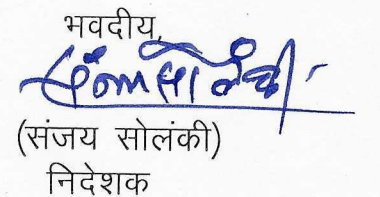 भवदीय,
(संजय सोलंकी)
निदेशक